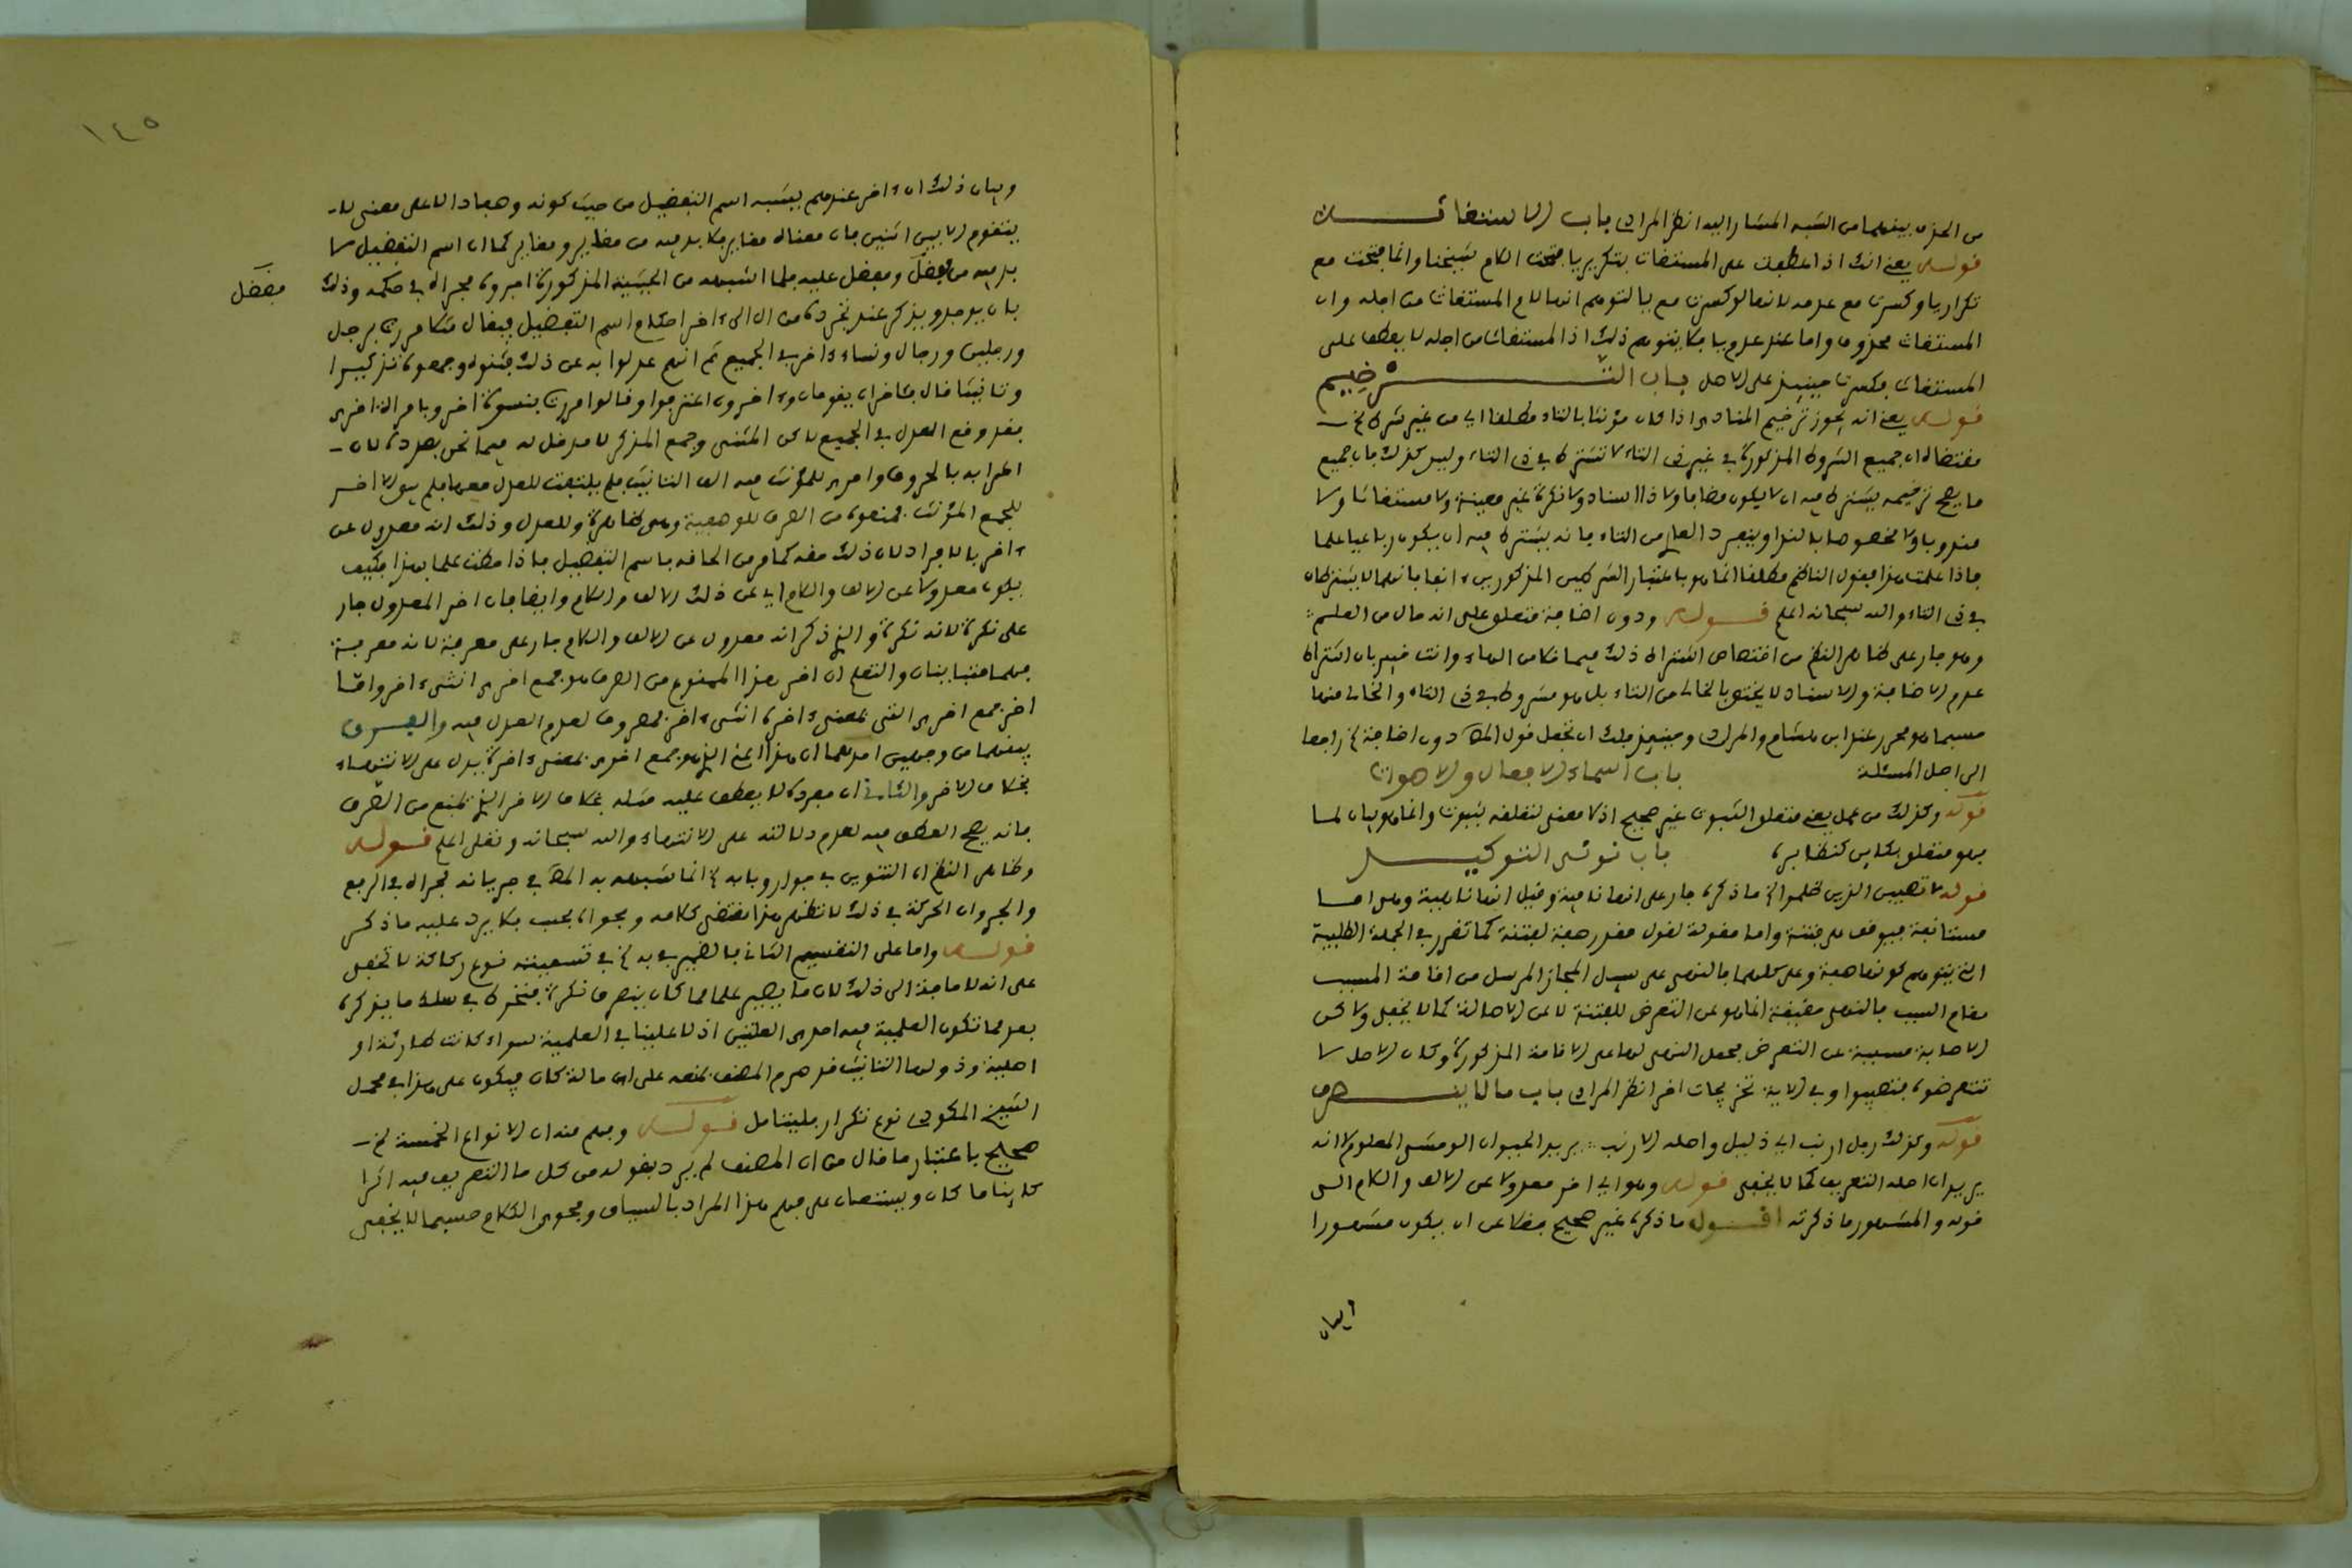 من الحذف بينهما من الشبه المشار اليه انظر المرادي باب الاستغاثة
قوله يعني انك اذا عطفت على المستغاث بتكرير يا فتحت اللام بشيخنا وانما فتحت مع
تكرار يا وكسرت مع عدمه لانها لو كسرت مع يا لتوهم انها لام المستغاث من اجله وان
المستغاث محذوف واما عند عدم يا فلا يتوهم ذلك اذ المستغاث من اجله لا يعطف على
المستغاث فكسرت حينئذ على الاصل باب الترخيم
قوله يعني انه يجوز ترخيم المنادى اذا كان مؤنثا بالتاء مطلقا اي من غير شرط الخ
مقتضاه ان جميع الشروط المذكورة في غير ذي التاء لا تشترط في ذي التاء وليس كذلك بل جميع
ما يصح ترخيمه يشترط فيه ان لا يكون مضافا ولا ذا اسناد ولا نكرة غير معينة ولا مستغاثا ولا
مندوبا ولا مخصوصا بالندا وينفرد العلم من التاء بانه يشترط فيه ان يكون رباعيا علما
فاذا علمت هذا فقول الناظم مطلقا انما هو باعتبار الشرطين المذكورين ءانفا فانهما لا يشترطان
في ذي التاء والله سبحانه اعلم قوله ودون اضافة متعلق على انه حال من العلم
وهو جار على ظاهر النظم من اختصاص اشتراط ذلك فيما خلا من الهاء وانت خبير بان اشتراط
عدم الاضافة والاسناد لا يختص بالخالي من التاء بل هو مشروط في ذي التاء والخالي منها
حسبما هو محرر عند ابن هشام والمرادي وحينئذ فلك ان تجعل قول المص دون اضافة الخ راجعا
الى اصل المسئلة باب اسماء الافعال والاصوات
قوله وكذلك من عمل يعني متعلق الثبوت غير صحيح اذ لا معنى لتعلقه بثبوت وانما هو بيان لما
فهو متعلق بكاين كنظايره باب نوني التوكيد
قوله لا تصيبن الذين ظلموا الخ ما ذكره جار على انها نافية وقيل انها ناهية وهل هما
مستانفة فيوقف على فتنة واما مقولة لقول مقدر صفة لفتنة كما تقرر في الجملة الطلبية
التي يتوهم كونها صفة وعلى كليهما فالنهي على سبيل المجاز المرسل من اقامة المسبب
مقام السبب فالنهي حقيقة انما هو عن التعرض للفتنة لا عن الاصابة كما لا يخفى ولا كن
الاصابة مسببة عن التعرض فجعل النهي لها على الاقامة المذكورة وكان الاصل لا
تتعرضوا فتصيبوا وفي الاية تخريجات اخر انظر المرادي باب ما لا ينصرف
قوله وكذلك رجل ارنب اي ذليل واصله الارنب يريد الحيوان الوحشي المعلوم لا انه
يريد ان اصله التعريف كما لا يخفى قوله وهو اي اخر معدولا عن الالف واللام الى
قوله والمشهور ما ذكرته اقول ما ذكره غير صحيح فضلا عن ان يكون مشهورا
وبيان
١٤٥
وبيان ذلك ان ءاخر عندهم يشبه اسم التفضيل من حيث كونه وصفا دالا على معنى لا
يتقوم الا بين اثنين فان معناه مغاير فلا بد فيه من مغاير ومغاير كما ان اسم التفضيل لا
بد فيه من مفضل ومفضل عليه فلما اشبهه من الحيثية المذكورة اجروه مجراه في حكمه وذلك
مفضل
بان يوحد ويذكر عند تجرده من ال الى ءاخر احكام اسم التفضيل فيقال مثلا مررت برجل
ورجلين ورجال ونساء ءاخر في الجميع ثم انهم عدلوا به عن ذلك فثنوه وجمعوه تذكيرا
وتانيثا فقال فئاخران يقومان وءاخرون اعترفوا وقالوا مررت بنسوة اخر وبامراة اخرى
فقد وقع العدل في الجميع لا كن المثنى وجمع المذكر لا مدخل له فيما نحن بصدده لان
اعرابه بالحروف واخرى للمؤنث فيه الف التانيث فلم يلتفت للعدل معها فلم يبق الا اخر
للجمع المؤنث فمنعوه من الصرف للوصفية وهي ظاهرة وللعدل وذلك انه معدول عن
ءاخر بالافراد لان ذلك حقه كما مر من الحاقه باسم التفضيل فاذا حطت علما بهذا فكيف
يكون معدولا عن الالف واللام اي عن ذلك الالف واللام وايضا فان اخر المعدول جار
على نكرة لانه نكرة والذي ذكر انه معدول عن الالف واللام جار على معرفة لانه معرفة
فهما متباينان والتعلم ان اخر هذا الممنوع من الصرف هو جمع اخرى انثى ءاخر واما
اخر جمع اخرى التي بمعنى ءاخرة انثى ءاخر فمصروف لعدم العدل فيه والفرق
بينهما من وجهين احدهما ان هذا اعني الذي هو جمع اخرى بمعنى ءاخرة يدل على الانتهاء
بخلاف الاخر والثاني ان مفرده لا يعطف عليه مثله بخلاف الاخر الذي يمنع من الصرف
فانه يصح العطف فيه لعدم دلالته على الانتهاء والله سبحانه وتعلى اعلم قوله
وظاهر النظم ان التنوين في جوار وبابه الخ انما شبهه به المص في جريانه مجراه في الرفع
والجر وان الحركة في ذلك لا تظهر هذا مقتضى كلامه وفحواه فحسب فلا يرد عليه ما ذكر
قوله واما على التقسيم الثاني فالضمير في به الخ في تسميته نوع ركاكة لا تخفى
على انه لا حاجة الى ذلك لان ما يصير علما مما كان ينصرف نكرة فتخرط في سلك ما يذكره
بعد مما تكون العلمية فيه احدى العلتين اذ لا علينا في العلمية سواء كانت طارئة او
اصلية وذو لها التانيث قد صرح المصنف بمنعه على اي حالة كان فيكون على هذا في محمل
الشيخ المكودي نوع تكرار فليتامل قوله وفهم منه ان الانواع الخمسة الخ
صحيح باعتبار ما قال من ان المصنف لم يرد بقوله من كل ما التعريف فيه اثرا
كاينا ما كان ويستعان على فهم هذا المراد بالسياق وفحوى الكلام حسبما لا يخفى